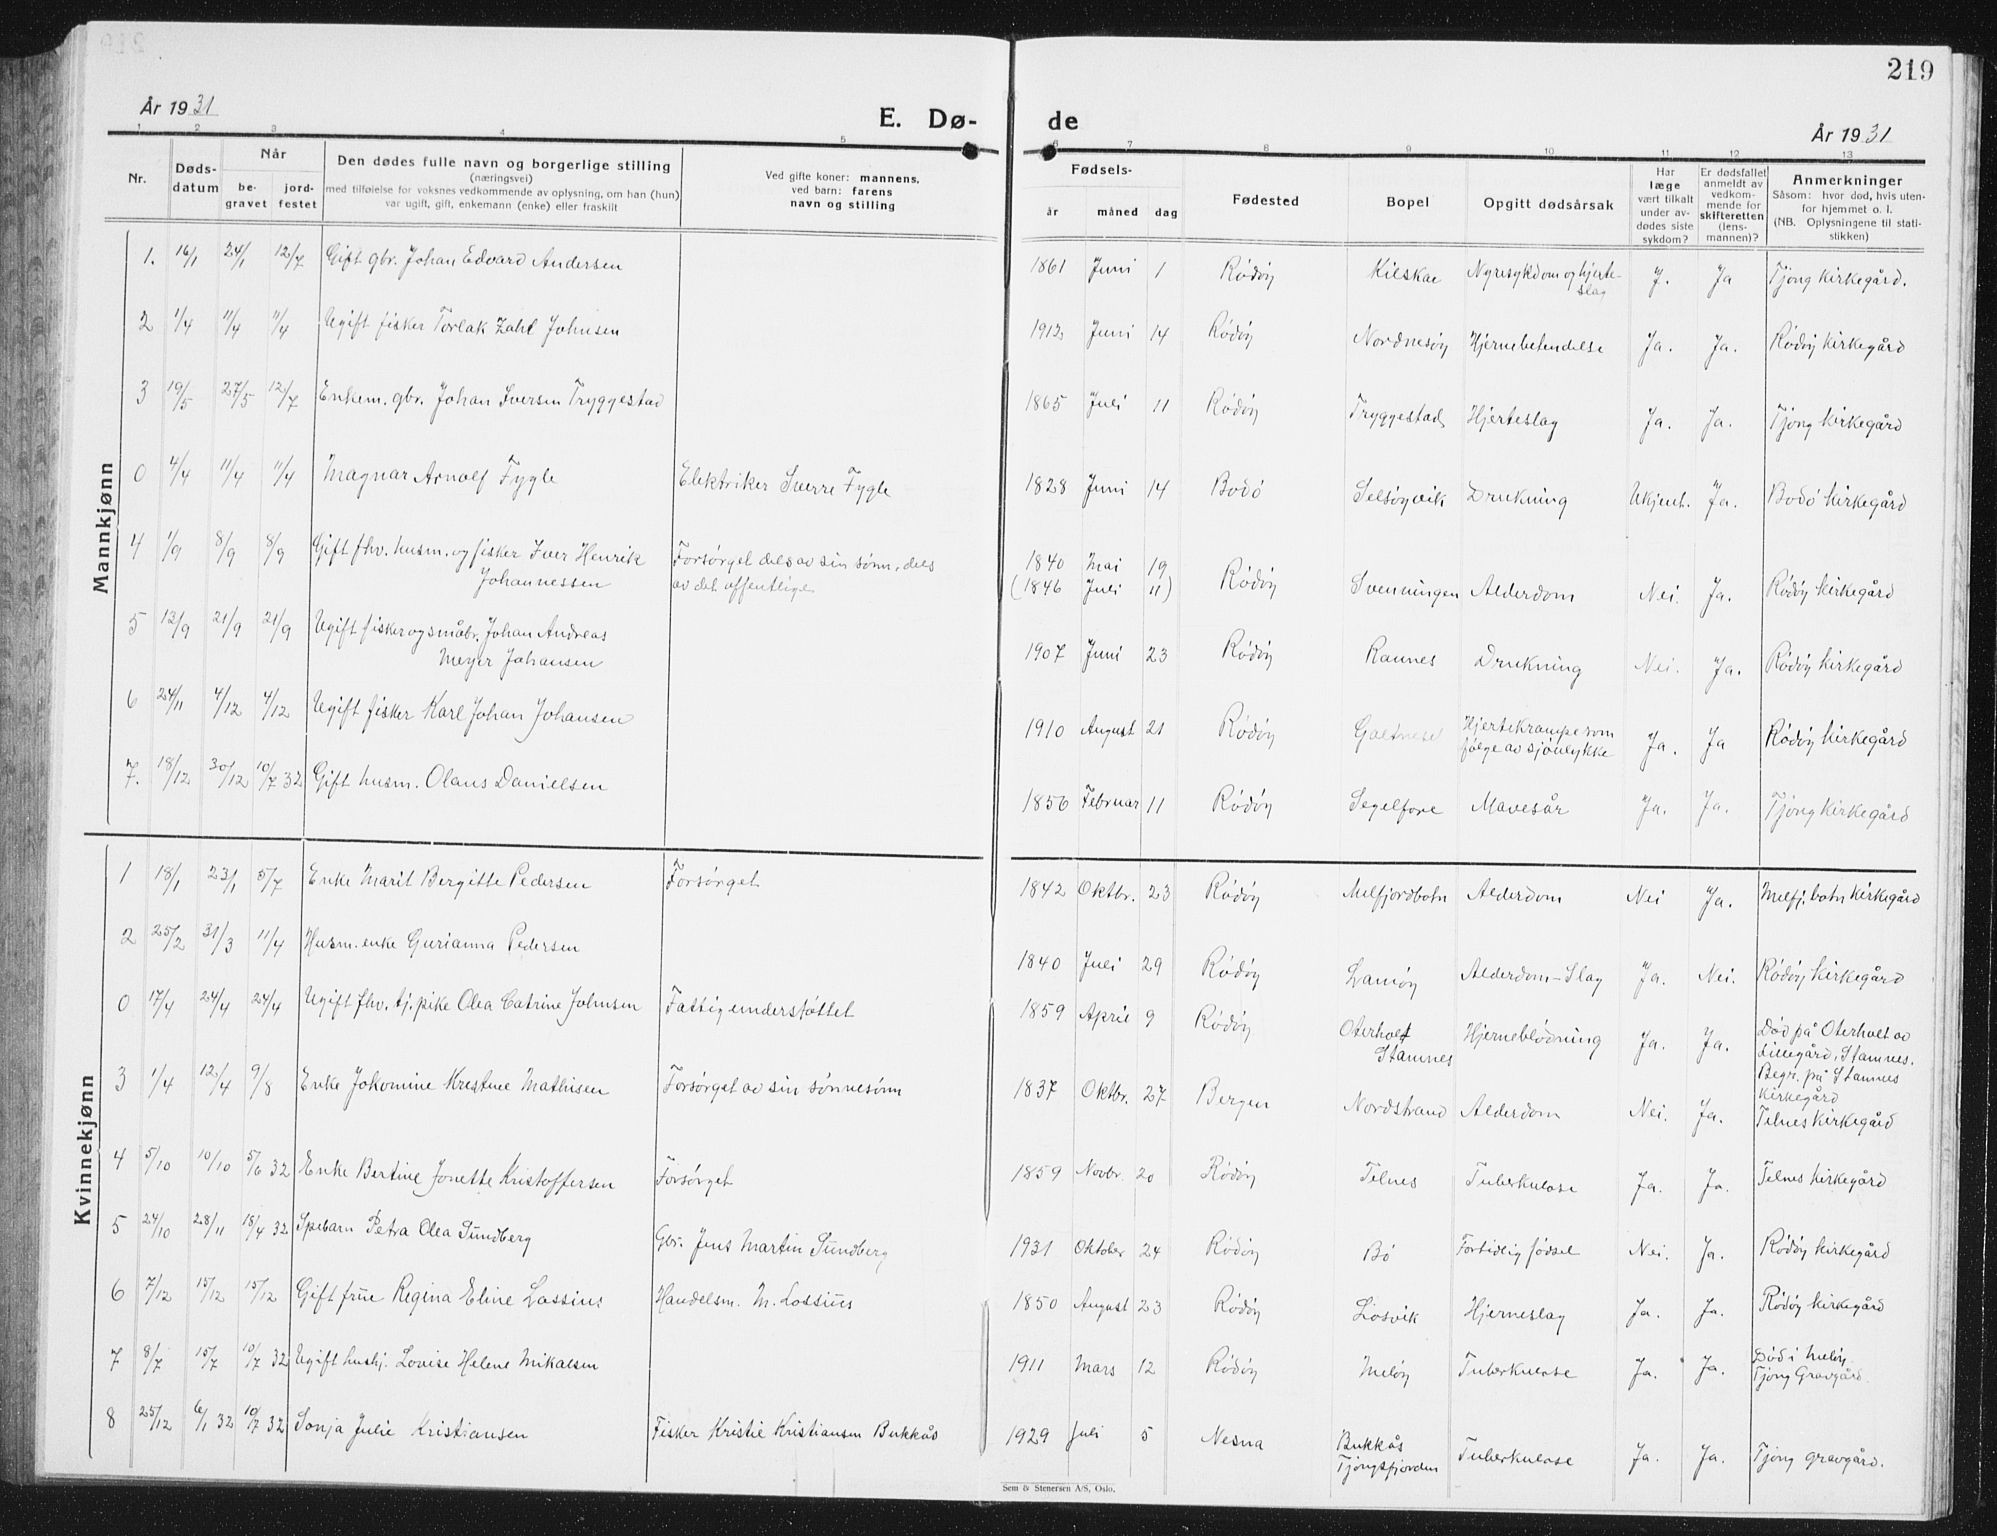 219
År 1931
E. Dø-
de
År 1931
1 2 3 4 5 6 7 8 9 10 11 12 13
Nr.
Døds-
datum
Når
be-
gravet
jord-
festet
Den dødes fulle navn og borgerlige stilling
(næringsvei)
med tilføielse for voksnes vedkommende av oplysning, om han (hun)
var ugift, gift, enkemann (enke) eller fraskilt
Ved gifte koner: mannens,
ved barn: farens
navn og stilling
Fødsels-
år måned dag
Fødested
Bopel
Opgitt dødsårsak
Har
læge
vært tilkalt
under av-
dødes siste
sykdom?
Er dødsfallet
anmeldt av
vedkom-
mende for
skifteretten
(lens-
mannen)?
Anmerkninger
Såsom: hvor død, hvis uten-
for hjemmet o. l.
(NB. Oplysningene til stati-
stikken)
Mannkjønn
1. 16/1 24/1 12/7 Gift gbr. Johan Edvard Andersen 1861 Juni 1 Rödöy Kilskae Nyresykdom og hjerte-
slag J. Ja Tjong Kirkegård.
2 1/4 11/4 11/4 Ugift fisker Torlak Zahl Johnsen 1912 Juni 14 Rödöy Nordnesöy Hjernebetendelse Ja. Ja. Rödöy Kirkegård
3 19/5 27/5 12/7 Enkem. gbr. Johan Iversen Tryggestad 1865 Juli 11 Rödöy Tryggestad Hjerteslag Ja. Ja. Tjong Kirkegård
0 4/4 11/4 11/4 Magnar Arnolf Fygle Elektriker Sverre Fygle 1828 Juni 14 Bodö Selsöyvik Drukning Ukjent. Ja. Bodö Kirkegård
4 1/9 8/9 8/9 Gift fhv. husm. og fisker Iver Henrik
Johannessen
Forsörget dels av sin sönn, dels
av det offentlige
1840 Mai 19
(1846 Juli 11)
Rödöy Svenningen Alderdom Nei. Ja. Rödöy Kirkegård
5 12/9 21/9 21/9 Ugift fisker og småbr. Johan Andreas
Meyer Johansen
1907 Juni 23 Rödöy Rannes Drukning Nei. Ja. Rödöy Kirkegård
6 24/11 4/12 4/12 Ugift fisker Karl Johan Johansen 1910 August 21 Rödöy Hjertekrampe som
fölge av sjöulykke Ja. Ja Rödöy Kirkegård
7. 18/12 30/12 10/7 32 Gift husm. Olaus Danielsen 1856 Februar 11 Rödöy Segelfore Mavesår Ja. Ja. Tjong Kirkegård
Kvinnekjønn
1 18/1 23/1 5/7 Enke Marit Bergitte Pedersen Forsörget 1842 Oktbr. 23 Rödöy Melfjordbotn Alderdom Nei Ja. Melfj.botn Kirkegård
2 25/2 31/3 11/4 Husm. enke Gurianna Pedersen 1840 Juli 29 Rödöy Lamöy Alderdom-Slag Ja. Nei. Rödöy Kirkegård
0 17/4 24/4 24/4 Ugift fhv. tj.pike Olea Catrine Johnsen Fattigunderstöttet 1859 April 9 Rödöy Oterholt
Stamnes Hjerneblödning Ja. Ja. Död på Oterholt av
Lillegård, Stamnes.
Begr. på Stamnes
Kirkegård
3 1/4 12/4 9/8 Enke Jakomine Krestine Mathisen Forsörget av sin sönnesönn 1837 Oktbr. 27 Bergen Nordstrand Alderdom Nei. Ja. Telnes Kirkegård
4 5/10 10/10 5/6 32 Enke Bertine Jonette Kristoffersen Forsörget 1859 Novbr. 20 Rödöy Telnes Tuberkulose Ja. Ja. Telnes Kirkegård
5 24/10 28/11 18/4 32 Spebarn Petra Olea Sundberg Gbr. Jens Martin Sundberg 1931 Oktober 24 Rödöy Bö Fortidlig födsel Nei. Ja. Rödöy Kirkegård
6 7/12 15/12 15/12 Gift frue Regina Eline Lossius Handelsm. M. Lossius 1850 August 23 Rödöy Losvik Hjerneslag Ja. Ja. Rödöy Kirkegård
7 8/7 15/7 10/7 32 Ugift hushj. Lovise Helene Mikalsen 1911 Mars 12 Rödöy Melöy Tuberkulose Ja. Ja. Död i Melöy.
Tjong Gravgård.
8 25/12 6/1 32 10/7 32 Sonja Julie Kristiansen Fisker Kristie Kristiansen Bukkås 1929 Juli 5 Nesna Bukkås
Tjongsfjorden Tuberkulose Ja. Ja. Tjong gravgård.
Sem & Stenersen A/S, Oslo.